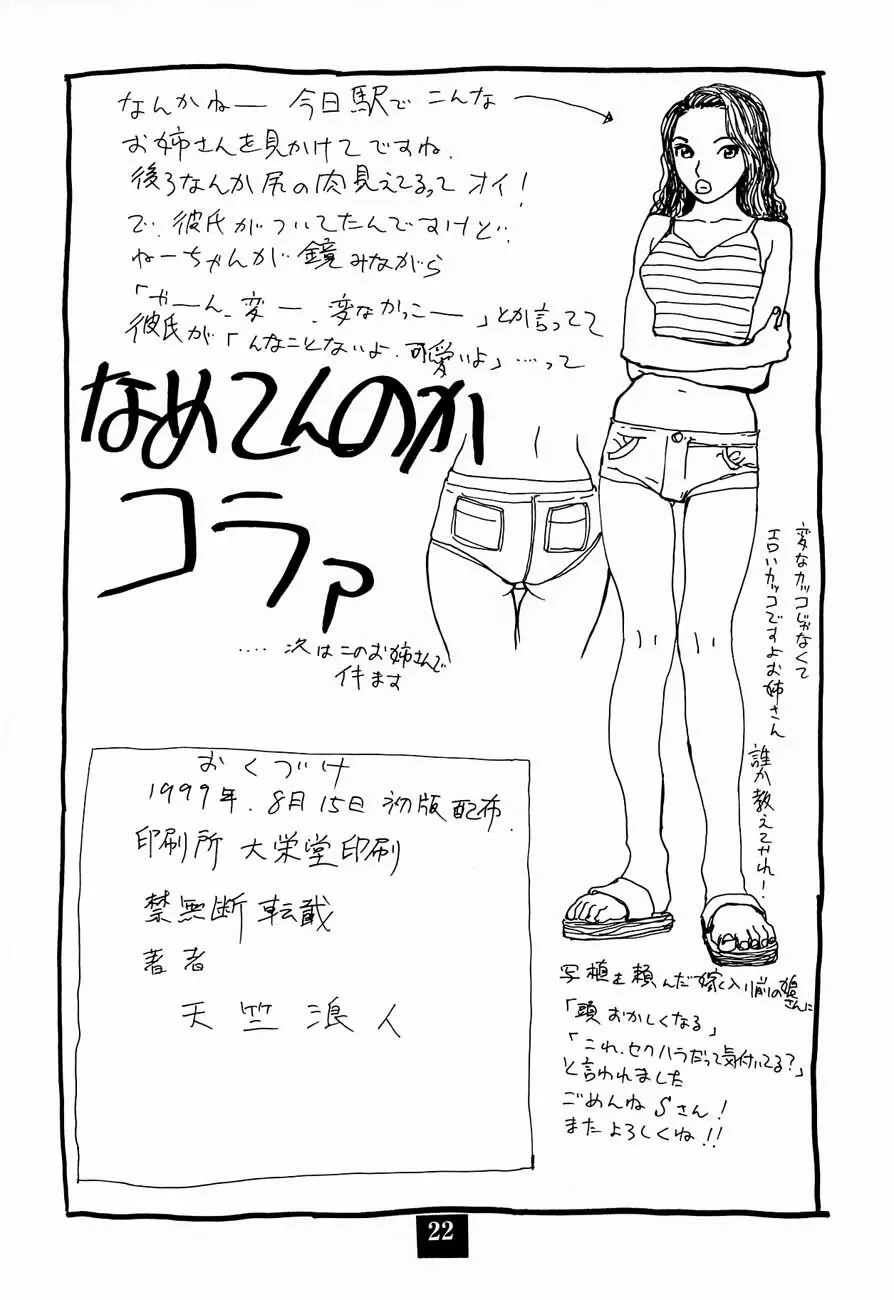 なんかねー 今日駅でこんな
お姉さんを見かけてですね.
後ろなんか尻の肉見えてるって オイ!
で.彼氏がついてたんですけど.
ねーちゃんが鏡みながら
「やーん.変ー.変なかっこー」とか言ってて
彼氏が「んなことないよ.可愛いよ」…って
なめてんのか
コラァ
‥‥次はこのお姉さんで
イキます
変なカッコじゃなくて
エロいカッコですよお姉さん
誰か教えてやれ!
おくづけ
1999年.8月15日 初版配布.
印刷所 大栄堂印刷
禁無断転載
著者
天竺浪人
写植を頼んだ嫁入り前の娘さんに
「頭おかしくなる」
「これ.セクハラだって気付いてる?」
と言われました
ごめんね Sさん!
またよろしくね!!
22